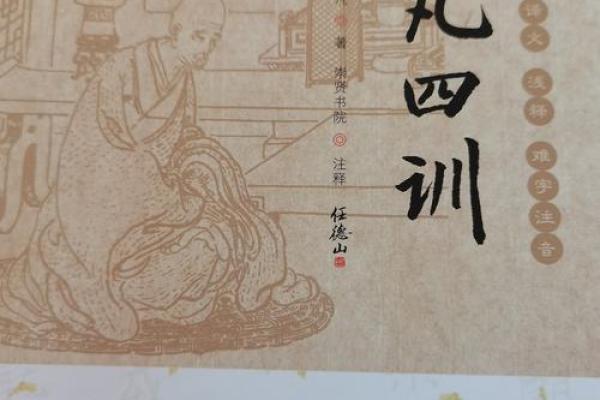 译文 浅释 难字注音
凡四训
凡 著 崇贤书院 注释
任德山